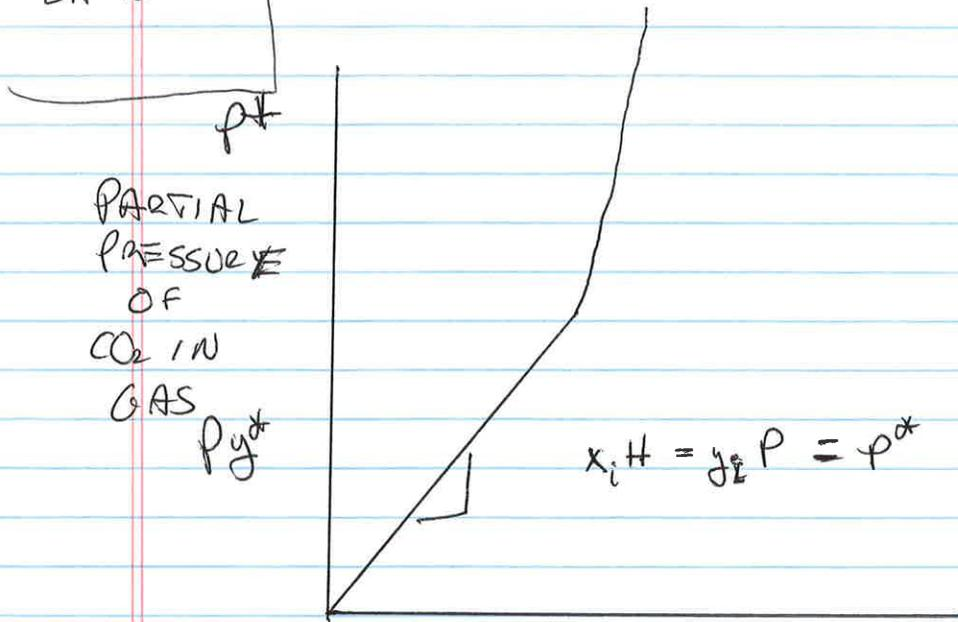 p*
PARTIAL
PRESSURE
OF
CO₂ IN
GAS
Py*
xᵢH = yᵢP = p*